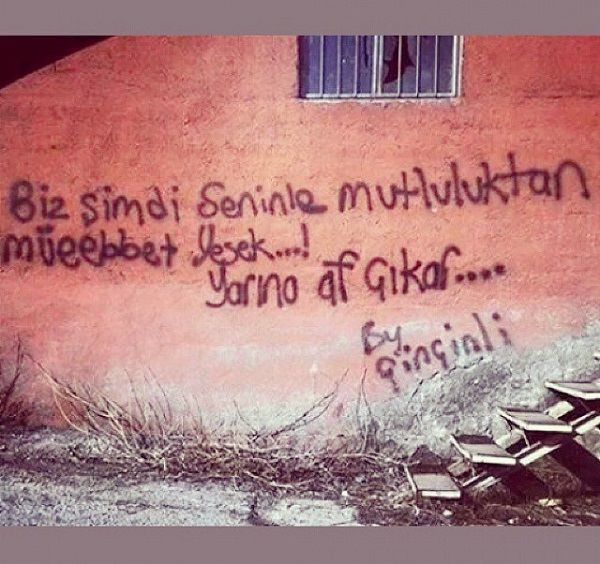 Biz şimdi Seninle mutluluktan
müeebbet Yesek...!
Yarına af Çıkar....
By
Çinçinli